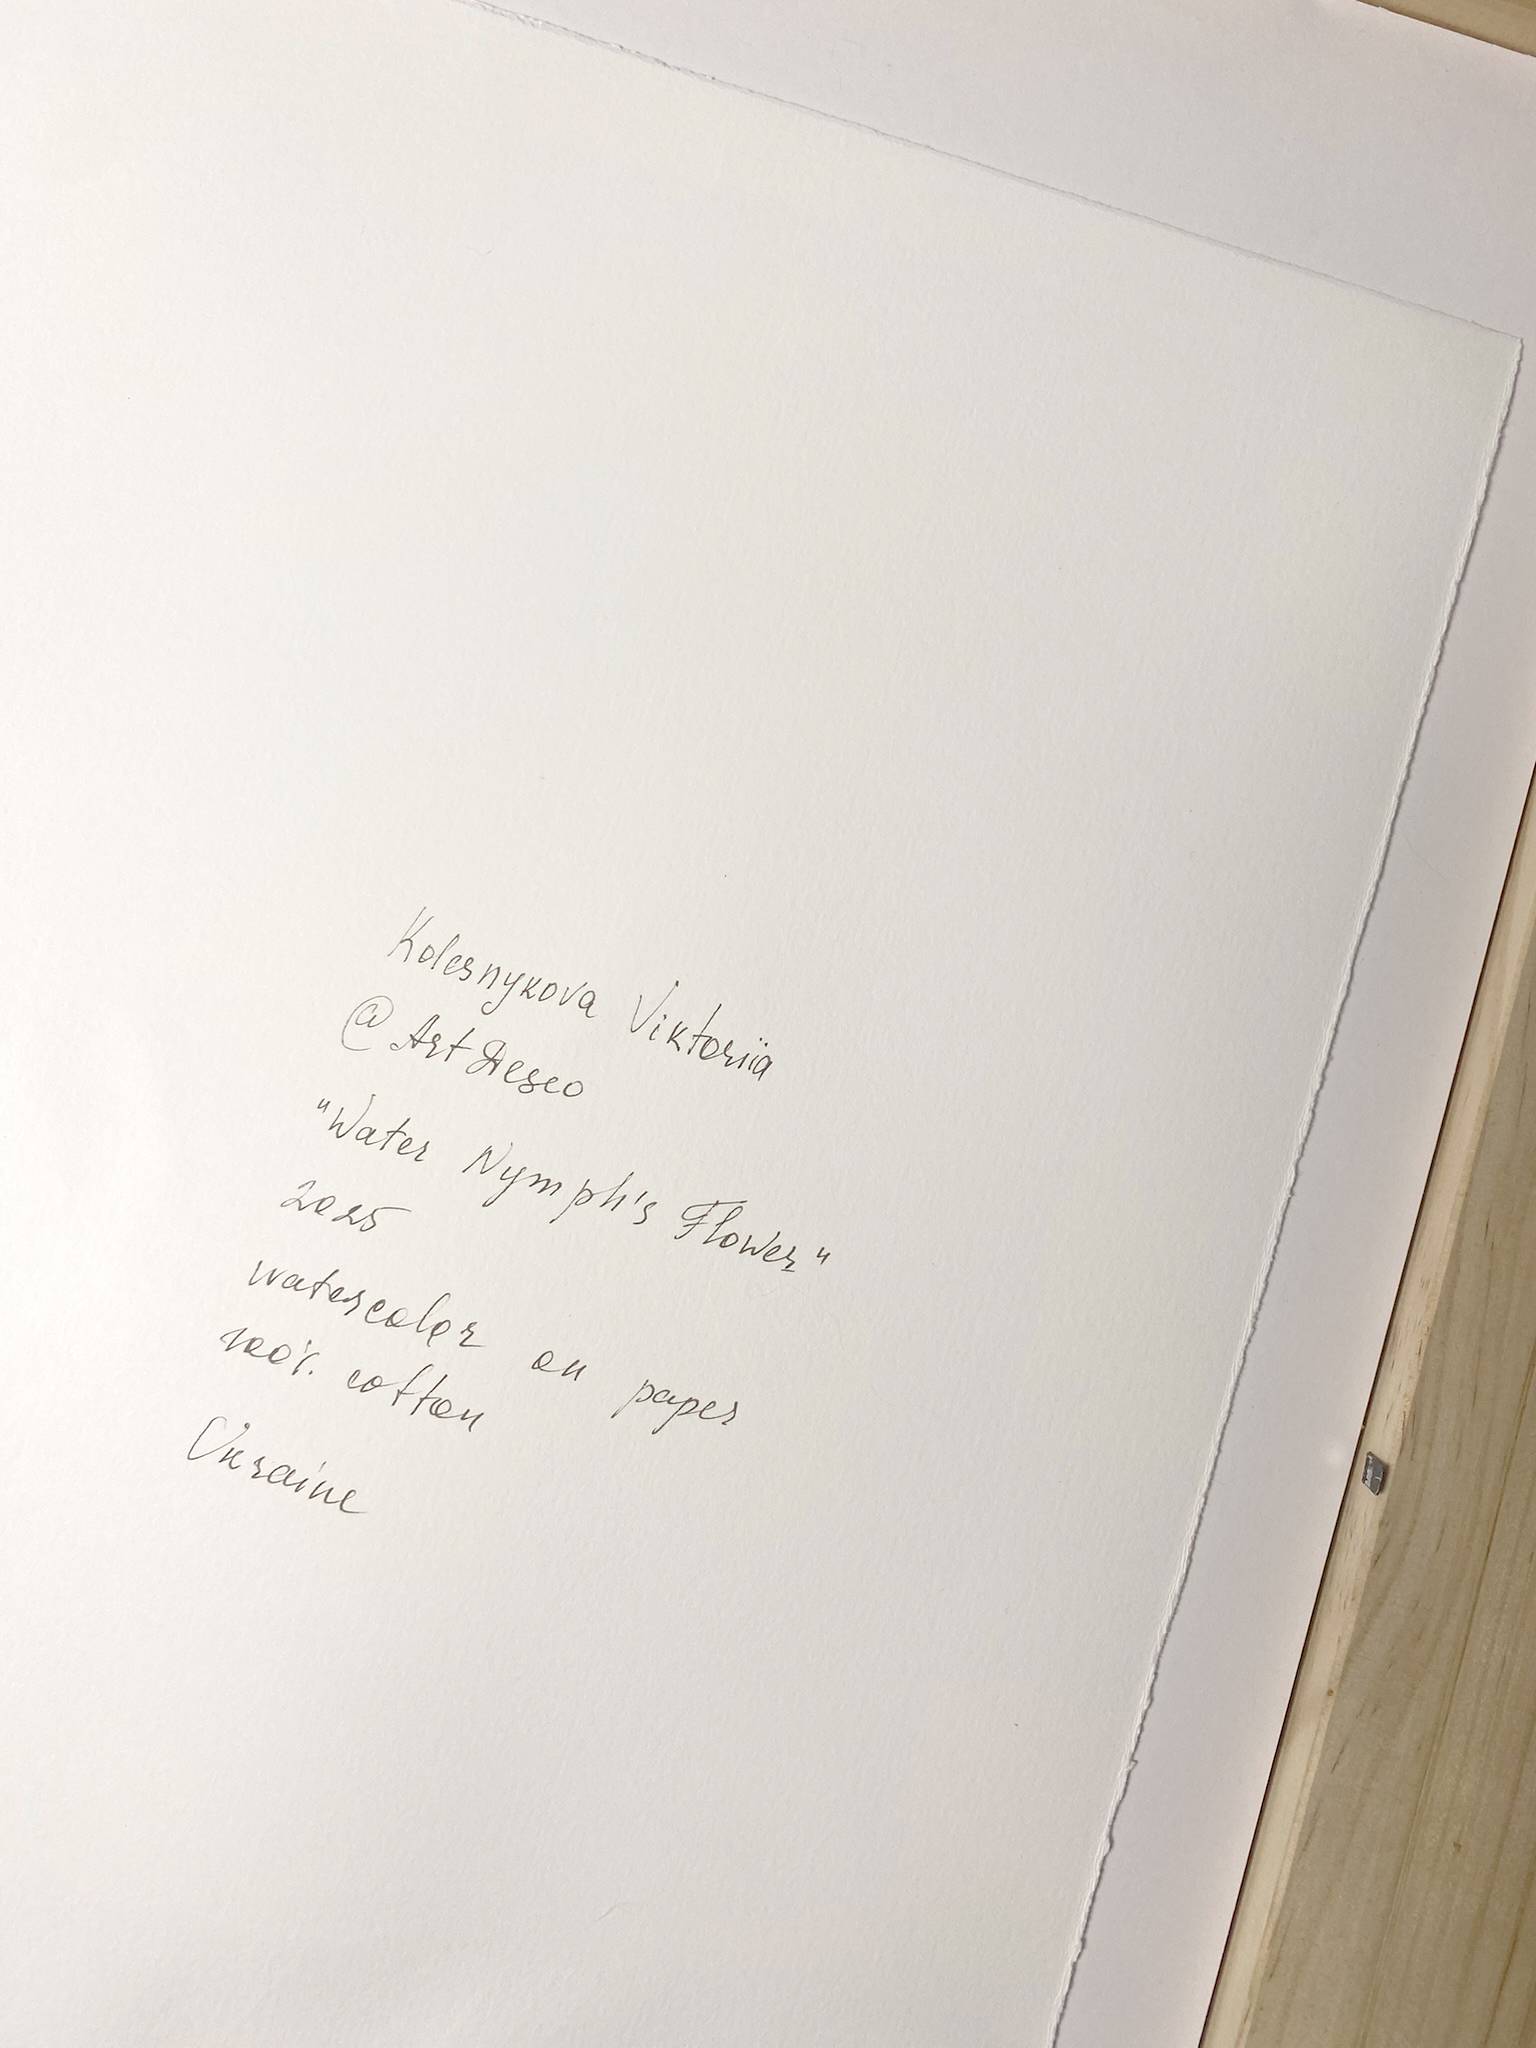 Kolesnykova Viktoriia
@ArtDeseo
"Water Nymph's Flower"
2025
watercolor on paper
100% cotton
Ukraine